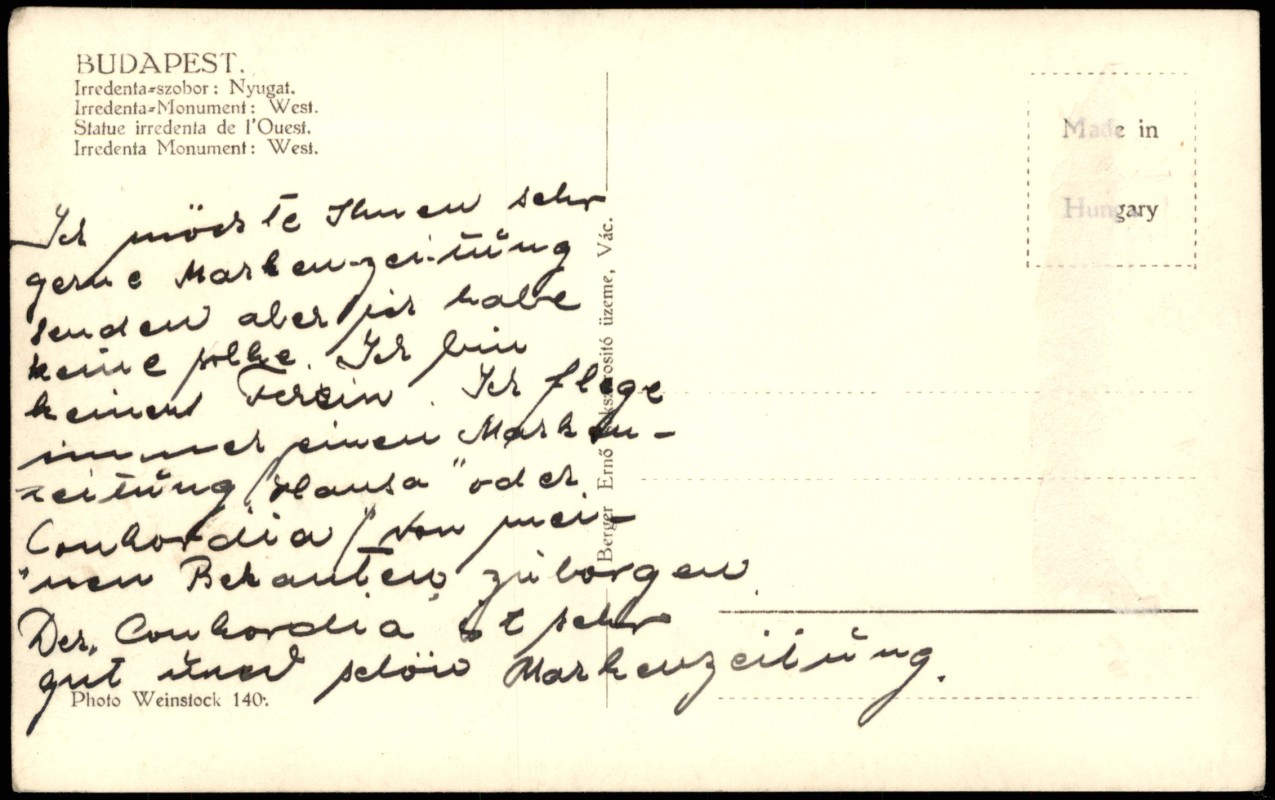 BUDAPEST.
Irredenta-szobor: Nyugat.
Irredenta-Monument: West.
Statue irredenta de l'Ouest.
Irredenta Monument: West.
Made in
Hungary
Ich möchte Ihnen sehr
gerne Marken-zeitung
senden aber ich habe
keine solke. Ich bin
keinen Verein. Ich flege
immer einen Marken-
zeitung "Hansa" oder
Conkordia" von mei-
nen Bekanten zu borgen
Der "Conkordia" ist sehr
gut und schön Markenzeitung.
Berger Ernő üzeme, Vác.
Photo Weinstock 140.